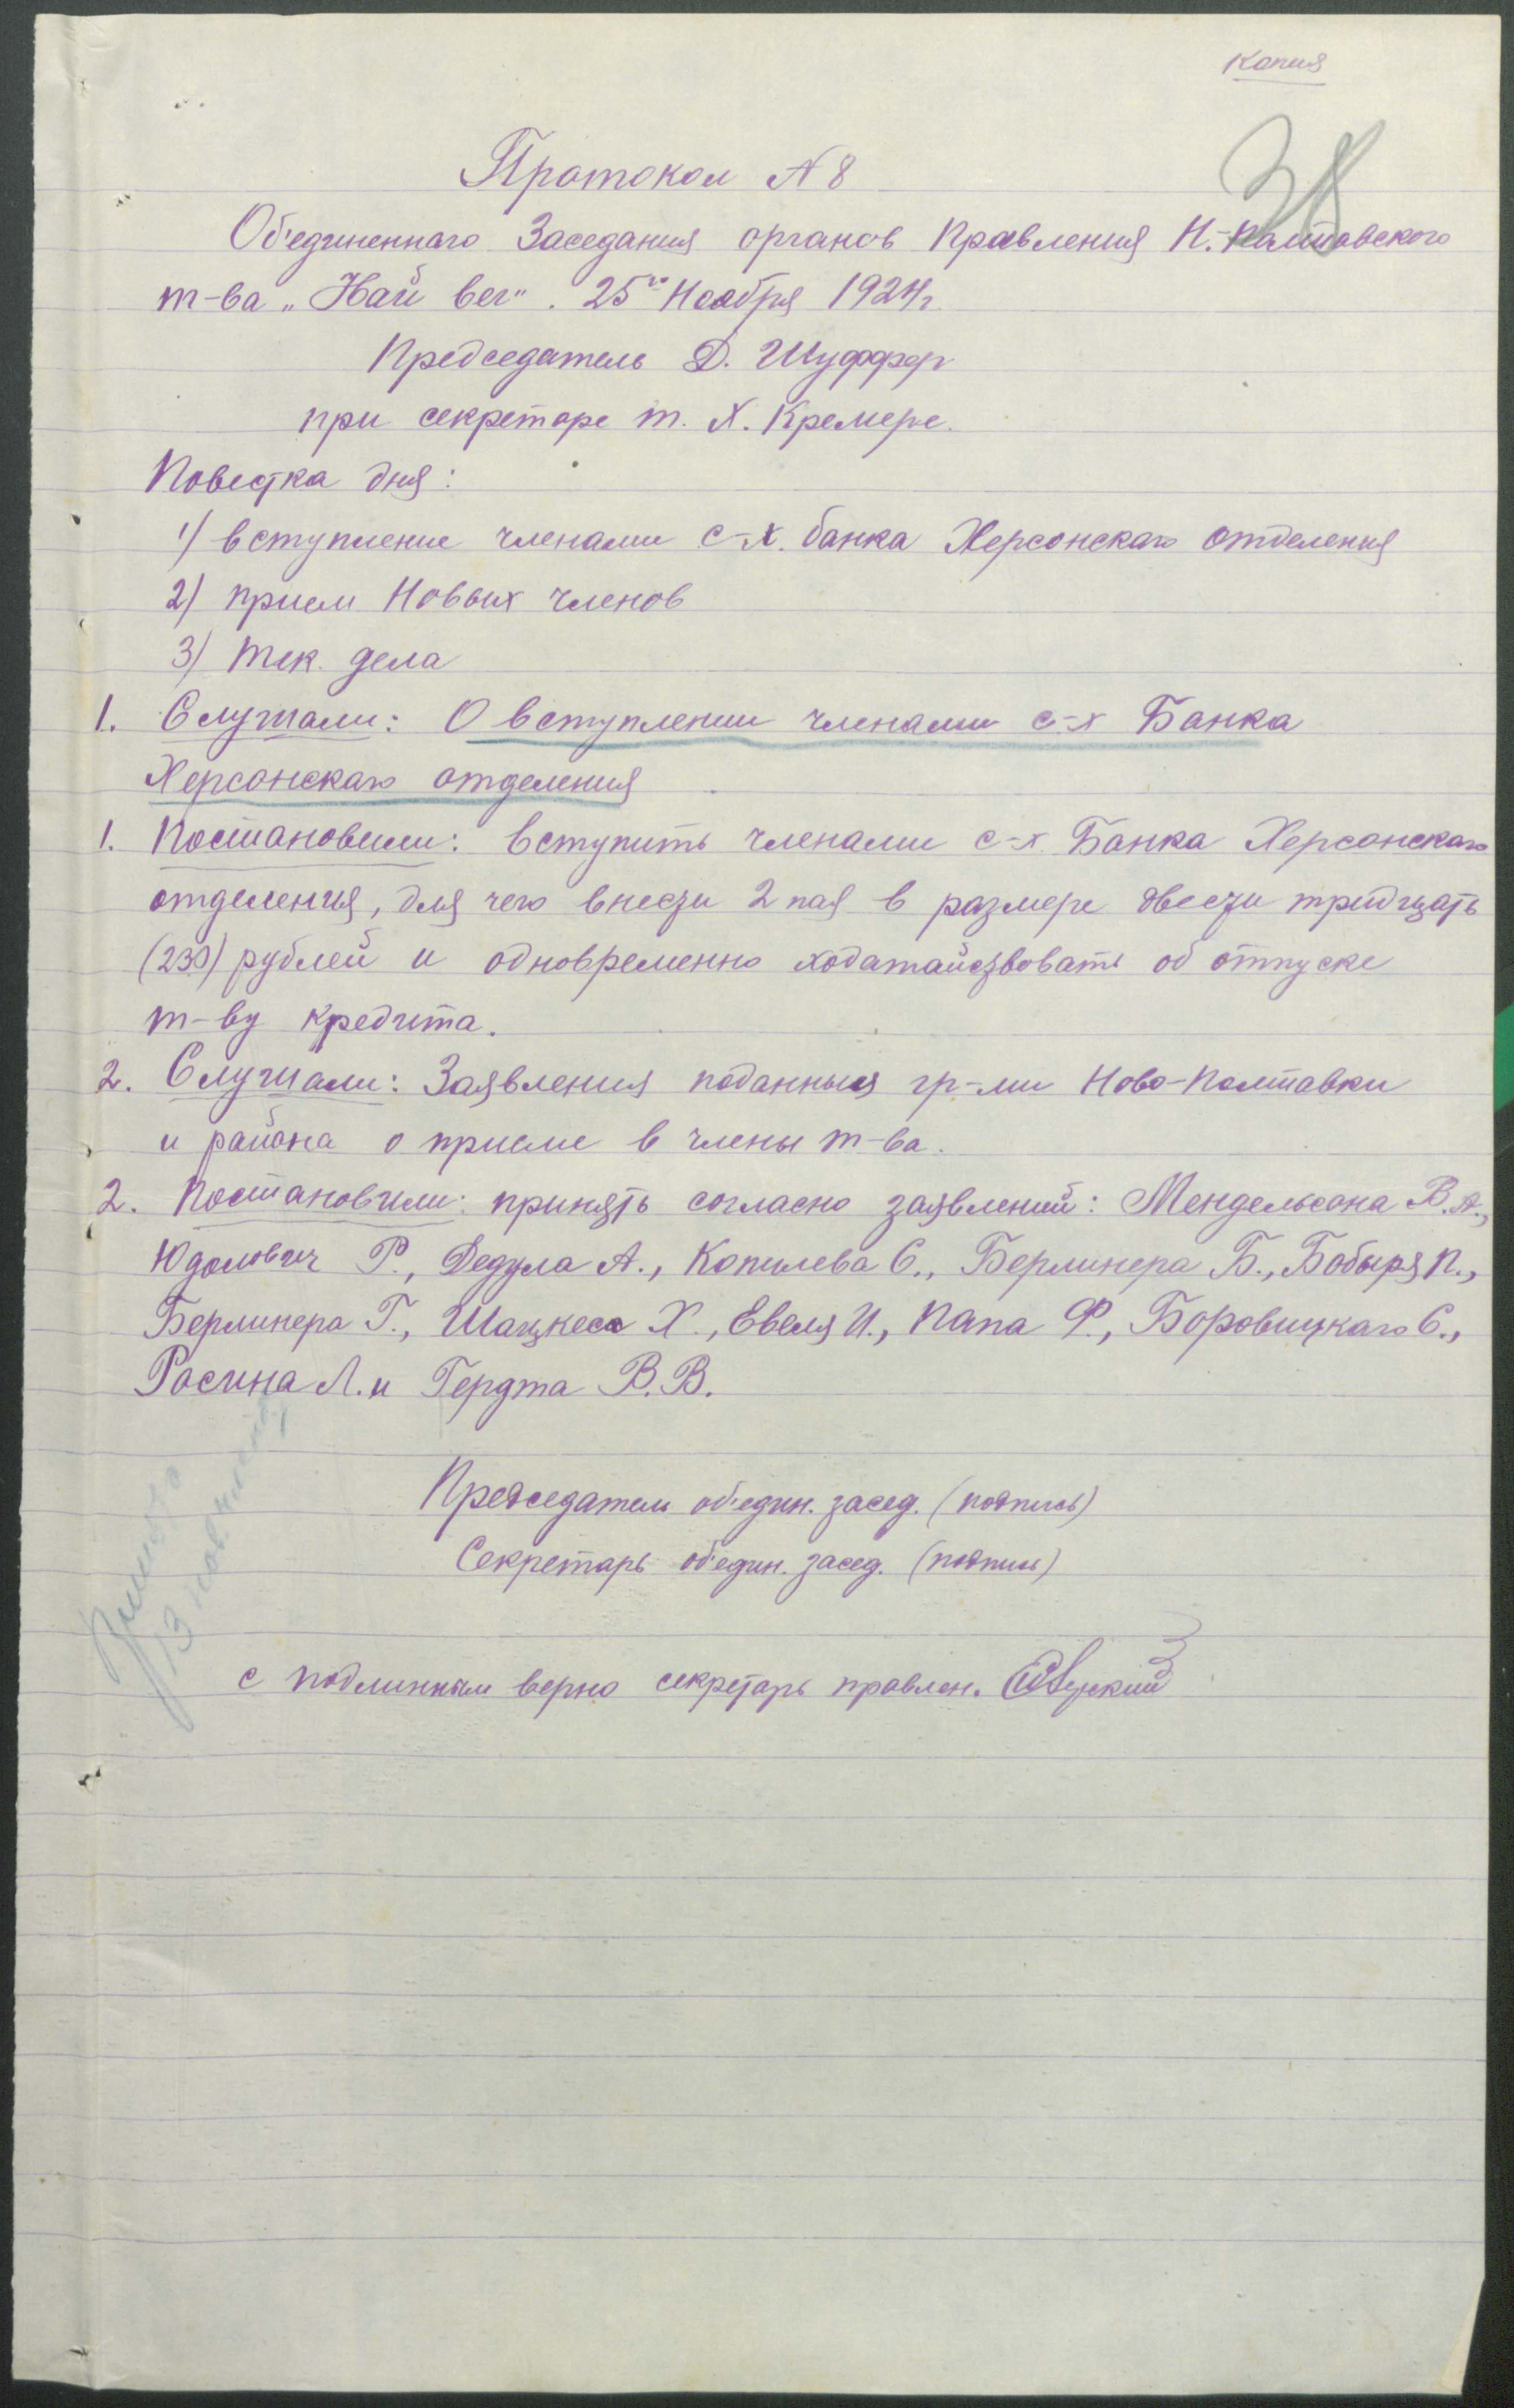 Копия
38
Протокол № 8
Об'единеннаго Заседания органов Правления Н.-Полтавского
т-ва „Най вег". 25го Ноября 1924 г.
Председатель Д. Шуффер
при секретаре т. Х. Кремере.
Повестка дня:
1) вступление членами с-х. банка Херсонскаго отделения
2) прием Новых членов
3) тек. дела
1. Слушали: О вступлении членами с-х Банка
Херсонскаго отделения
1. Постановили: вступить членами с-х Банка Херсонскаго
отделения, для чего внести 2 пая в размере двести тридцать
(230) рублей и одновременно ходатайствовать об отпуске
т-ву кредита.
2. Слушали: Заявления поданныя гр-ми Ново-Полтавки
и района о приеме в члены т-ва.
2. Постановили: принять согласно заявлений: Мендельсона В. А.,
Юдолович Р., Дедула А., Копилева С., Берлинера Б., Бобыря П.,
Берлинера Г., Шацкеса Х., Евеля И., Папа Ф., Боровицкаго С.,
Росина Л. и Гердта В. В.
Председатель об'един. засед. (подпись)
Секретарь об'един. засед. (подпись)
Принято
13
с подлинным верно секретарь правлен.